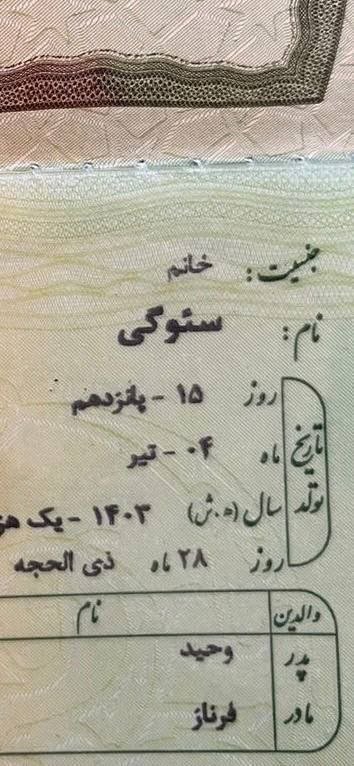 جنسیت: خانم
نام: ستوگی
تاریخ تولد
روز ۱۵ - پانزدهم
ماه ۰۴ - تیر
سال (ه.ش) ۱۴۰۳ - یک هز
روز ۲۸ ماه ذی الحجه
والدین نام
پدر وحید
مادر فرناز